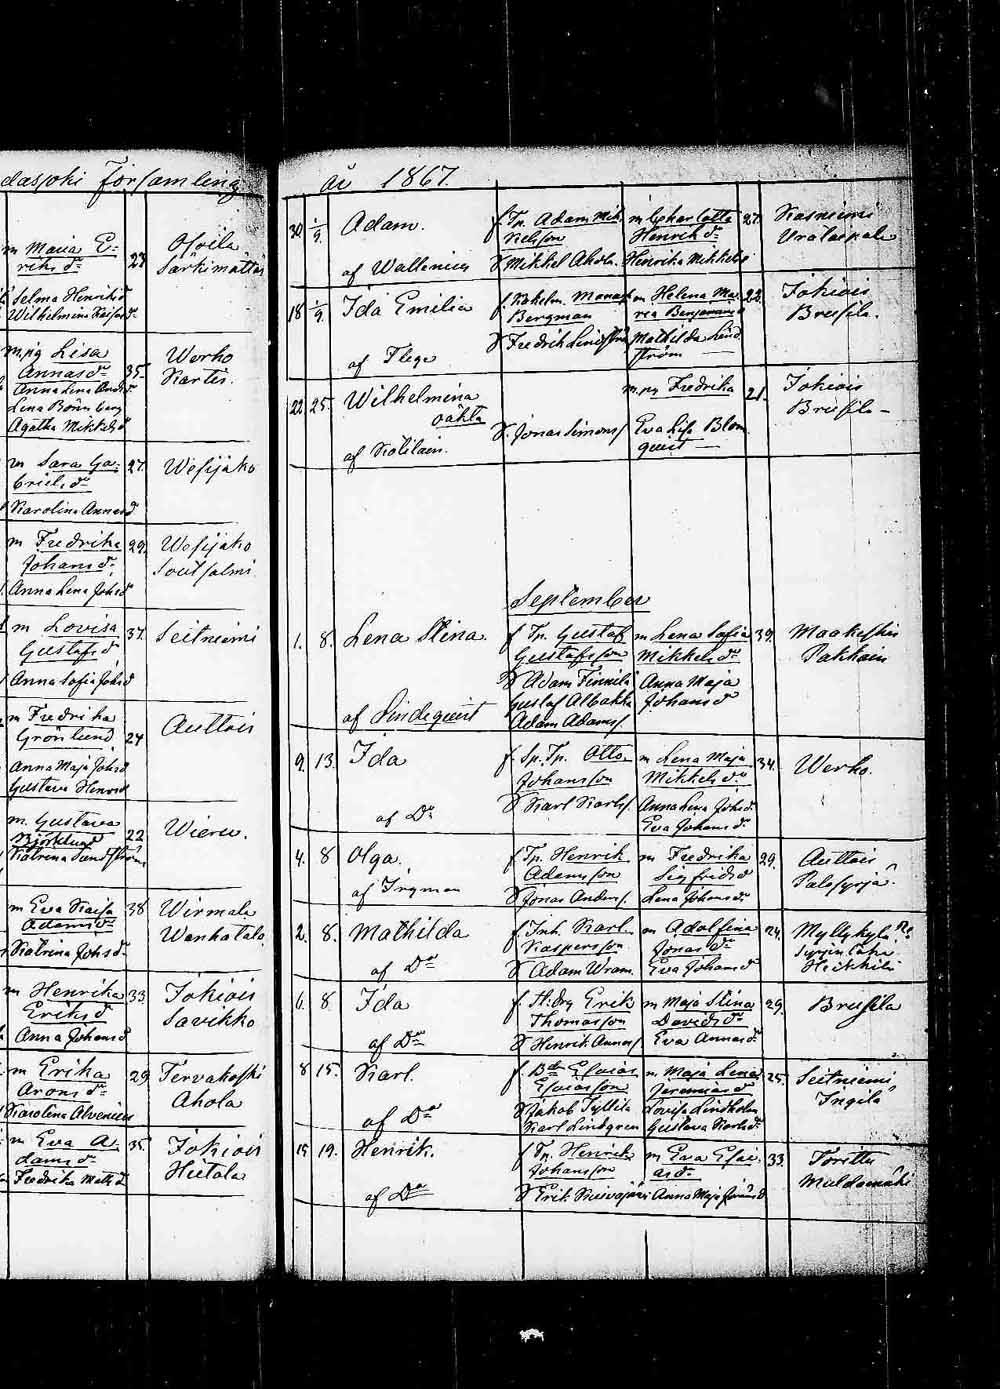 dasjoki Församling
m Maria E-
riksd:r 23
Selma Henriksd
Wilhelmina Kaisasd:r
Osoila
Särkimattas
m pig Lisa
Annasd:r 35
Anna Lena Andsd
Lena Bömberg
Agatha Mikkelsd
Werho
Kartis.
m Sara Ga-
brielsd:r 27.
Karolina Annasd
Wesijako
m Fredrika 29.
Johansd:r
Anna Lena Johsd
Wesijako
Soutsalmi
m Lovisa 37.
Gustafsd
Anna Sofia Johsd
Seitniemi
m Fredrika
Grönlund 24
Anna Maja Johsd
Gustava Henrsd
Auttois
m. Gustava
Björklund 22
Katrina Sundström
Wieru.
m Eva Kaisa 38
Adamsd:r
Katrina Johsd:r
Wirmala
Wanhatalo
m Henrika 33.
Eriksd:r
Anna Johansd
Jokiois
Savikko
m Erika 29
Aronsd:r
Karolina Alvenius
Tervakoski
Ahola
m Eva A- 35.
damsd:r
Fredrika Mattsd
Jokiois
Hietala
år 1867.
30 1/9. Adam.
af Wallenius
f Tp. Adam Mik-
kelsson
S Mikkel Ahola.
m Charlotta 27.
Henriksd:r
Henrika Mikkelsd
Kasniemi
18 1/9. Ida Emilia
af Flege
Bergman
S Fredrik Lindström
m Helena Ma- 22.
ria Benjaminsd
Mathilda Lind-
ström
Jokiois
Breifila.
22 25. Wilhelmina
oäkta
S. Jonas Simons/
m pig Fredrika 21.
Eva Lisa Blom
quist
Jokiois
Breifila
September
1. 8. Lena Stina.
af Lindequist
f Tp. Gustaf
Gustafsson
S Adam Finnilä
Gustaf Albakka
Adam Adams/
m Lena Sofia 39.
Mikkelsd:r
Anna Maja
Johansd
Maakeski
Pakkain
9. 13. Ida
af D:o
f Sp. Tp. Otto
Johansson
S Karl Karls/.
m Lena Maja 34.
Mikkelsd:r
Anna Lena Johsd.
Eva Johansd:r
Werho.
4. 8 Olga.
af Ingman
f Tp. Henrik
Adamsson
S Jonas Anders/.
m Fredrika 29.
Sigfridsd
Lena Johansd:r
Auttois
Palosyrjä
2. 8. Mathilda
af D:o
f Inh. Karl
Kaspersson
S Adam Wram.
m Adolfina 24.
Jonasd:r
Eva Johansd
Myllykylä
Heikkilä
6. 8 Ida
af D:o
f H:drg Erik
Thomasson
S Henrik Annas/
m Maja Stina 29.
Davidsd:r
Eva Annasd:r
Breifila
8 15. Karl.
af D:o
f B:de Esaias
Esaiasson
S Jakob Tyllilä
Karl Lindgren
m Maja Lena 25.
Jeremiasd
Lovisa Lindholm
Gustava Karlsd:r
Seitniemi
Ingila
15 19. Henrik.
af D:o
f Tp. Henrik
Johansson
S Erik Kuivajärvi
m Eva Esai- 33.
asd:r
Anna Maja
Toritto
Muldamäki